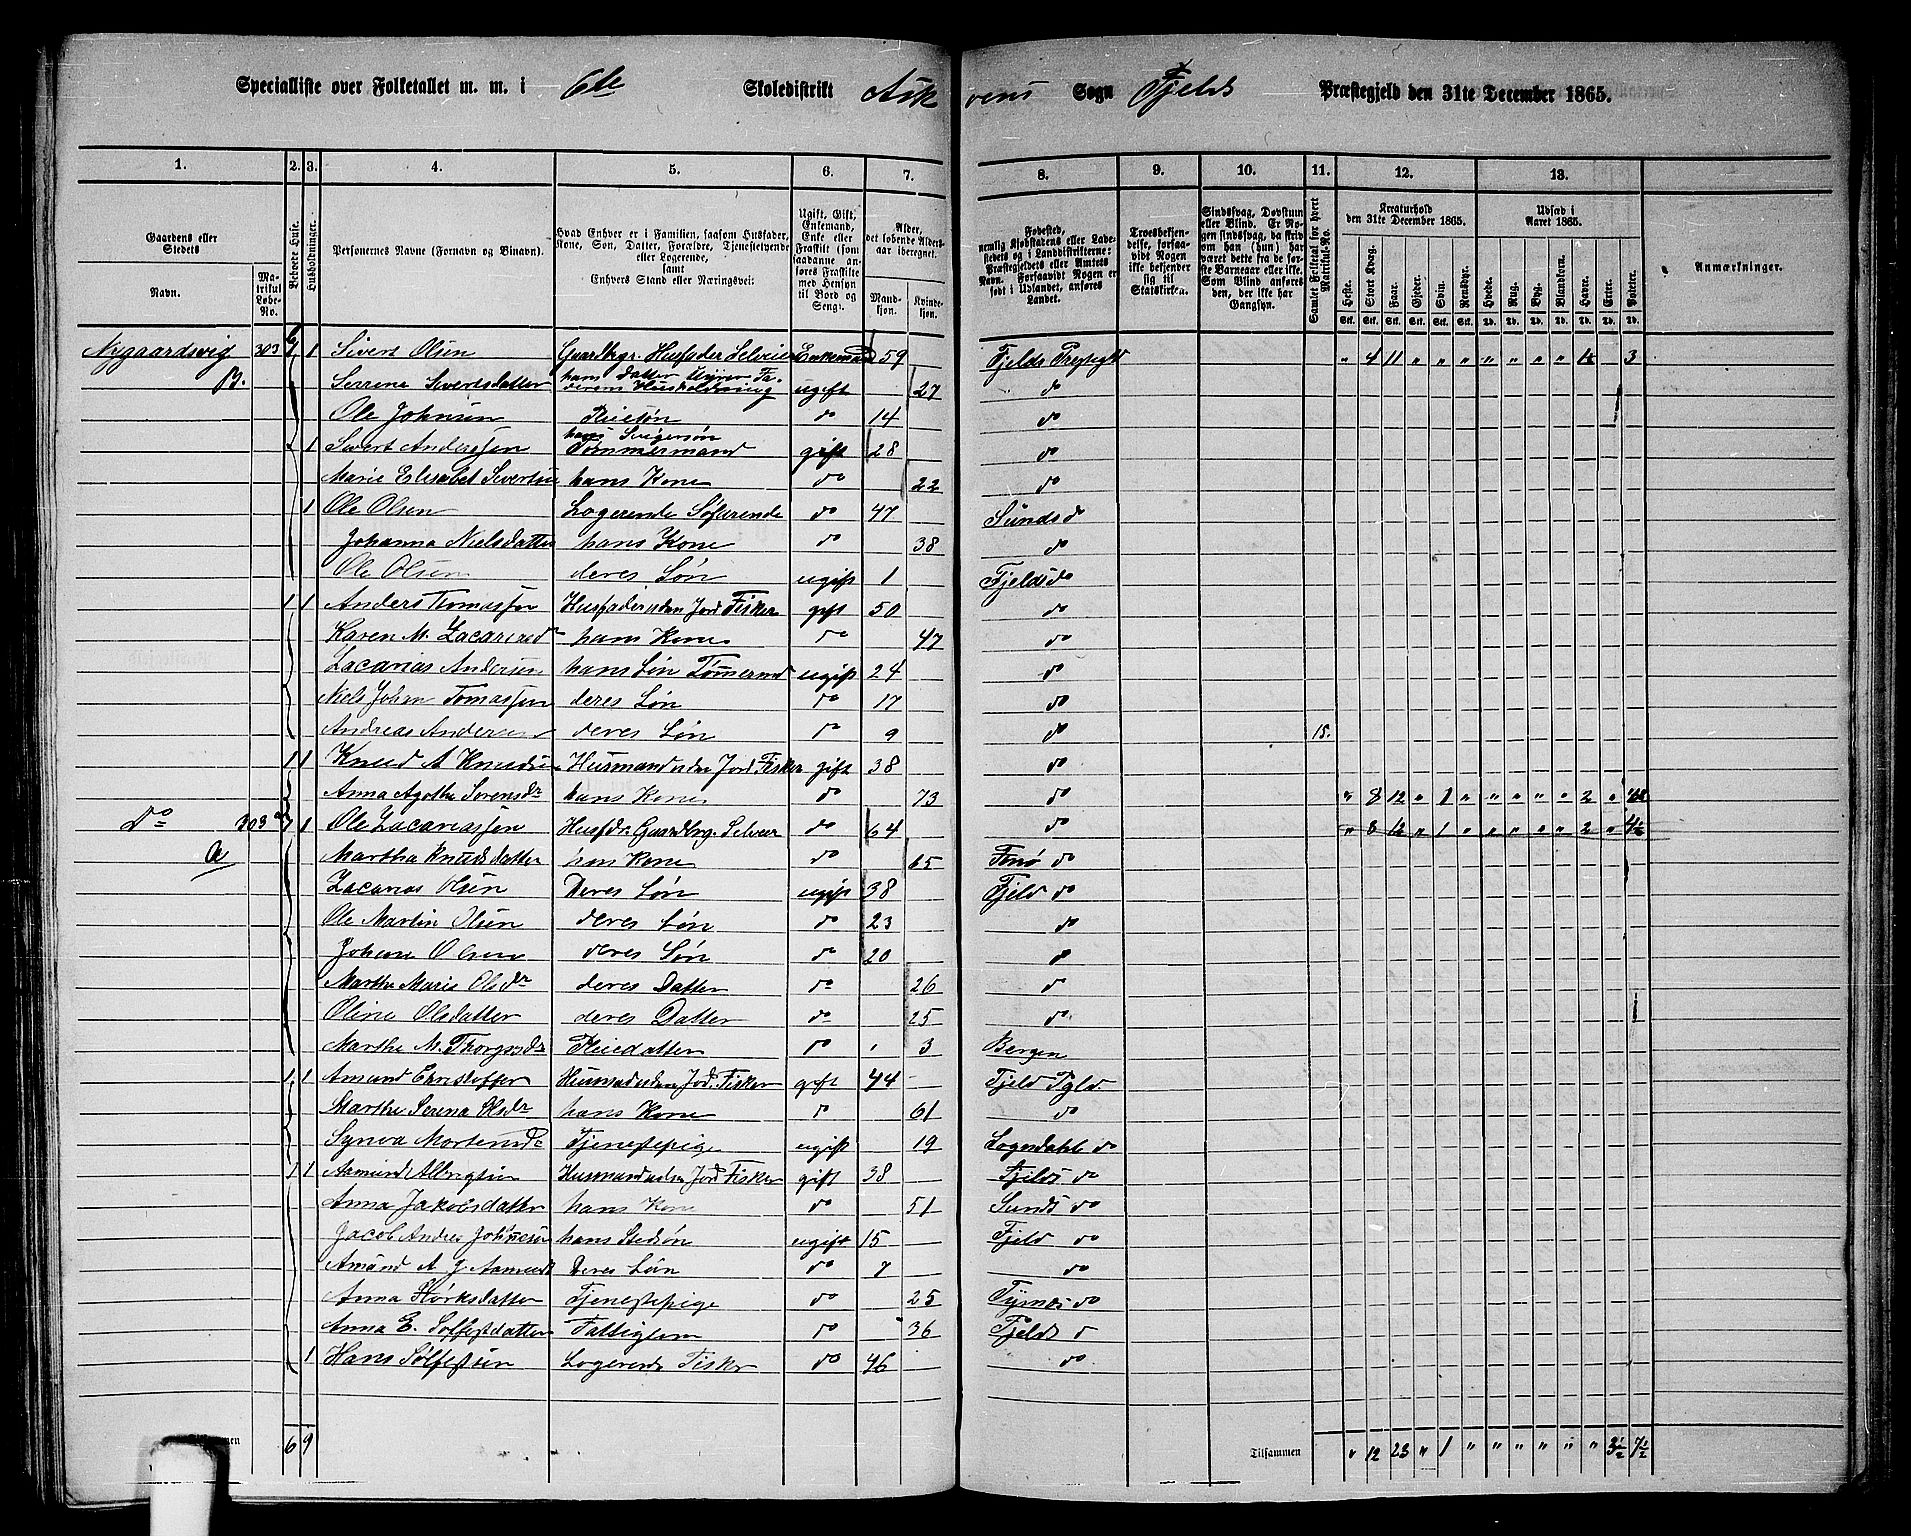 Specialliste over Folketallet m. m. i 6te Skoledistrikt Askøens Sogn Fjelds Præstegjeld den 31te December 1865.
1. 2. 3. 4. 5. 6. 7. 8. 9. 10. 11. 12. 13.
Gaardens eller Stedets Navn. Matrikul Løbe-No. Beboede Huse. Husholdninger. Personernes Navne (Fornavn og Binavn). Hvad Enhver er i Familien, saasom Husfader, Kone, Søn, Datter, Forældre, Tjenestetyende eller Logerende, samt Enhvers Stand eller Næringsvei: Ugift, Gift, Enkemand, Enke eller Fraskilt Alder, det løbende Aldersaar iberegnet. Mandkjøn. Kvindekjøn. Fødested, Troesbekjendelse, forsaavidt Nogen ikke bekjender sig til Statskirken. Sindssvag, Døvstum eller Blind. Samlet Folketal for hvert Matrikul-No. Kreaturhold den 31te December 1865. Udsæd i Aaret 1865. Anmærkninger.
Heste. Stort Kvæg. Faar. Gjeder. Svin. Rensdyr. Hvede. Rug. Byg. Blandkorn. Havre. Erter. Poteter.
Nygaardsvig 303 1 Sivert Olsen Gaardbgr. Husfader Selveier Enkemand 59 Fjelds Prestegld " 4 11 " " " " " " " " 3
B. Serrene Sivertsdatter hans Datter styrer Faderens Huusholdning ugift 27 do
Ole Johnsen Pleiesøn do 14 do
1 Sivert Anderssen hans Svigersøn Tømmermand gift 28 do
Marie Elisabet Sivertsen hans Kone do 22 do
1 Ole Olsen Logerende Søfarende do 47 Sunds do
Johanna Nielsdatter hans Kone do 38 do
Ole Olsen deres Søn ugift 1 Fjelds do
1 1 Anders Tomassen Husfader uden Jord Fisker gift 50 do
Karen M. Zacariasd hans Kone do 47 do
Zacarias Andersen hans Søn Tømermd ugift 24 do
Niels Johan Tomassen deres Søn do 17 do
Andreas Andersen deres Søn do 9 do 15.
1 1 Knud A Knudsen Husmand uden Jord, Fisker gift 38 do
Anna Agothe Sørensdr hans Kone do 73 do " 8 12 " 1 " " " " " 2 "
Do 303 1 Ole Zacariassen Husfdr. Gaardbrg. Selveier do 64 do " 8 12 " 1 " " " " " 2 " 4½
a Martha Knudsdatter hans Kone do 65 do
Zacarias Olsen Deres Søn ugift 38 Fjeld do
Ole Martin Olsen deres Søn do 23 do
Johan Olsen deres Søn do 20 do
Marthe Marie Olsdr deres Datter do 26 do
Oline Olsdatter deres Datter do 25 do
Marthe M. Pleiedatter do 3 Bergen
1 1 Amund Christoffer Husmand uden Jord, Fisker gift 44 Fjeld Pgld
Marthe Serena Olsdr hans Kone do 61 do
Synva Mortensdr Tjenestepige ugift 19 do
1 1 Aamund Albregtsen Husmand uden Jord Fisker gift 38 Fjelds do
Anna Jakobsdatter hans Kone do 51 Sunds do
Jacob Andres Johnesen hans Stedsøn ugift 15 Fjeld do
Amund A G Aamunds Deres Søn do 7 do
Anna Tjenestepige do 25 Tysnæs do
Anna E. Solfestdatter Fattiglem do 36 Fjelds do
1 Hans Sølfestsen Logerende Fisker do 46 do
6 9 Tilsammen " 12 23 " 1 " " " " " " 3½ 7½